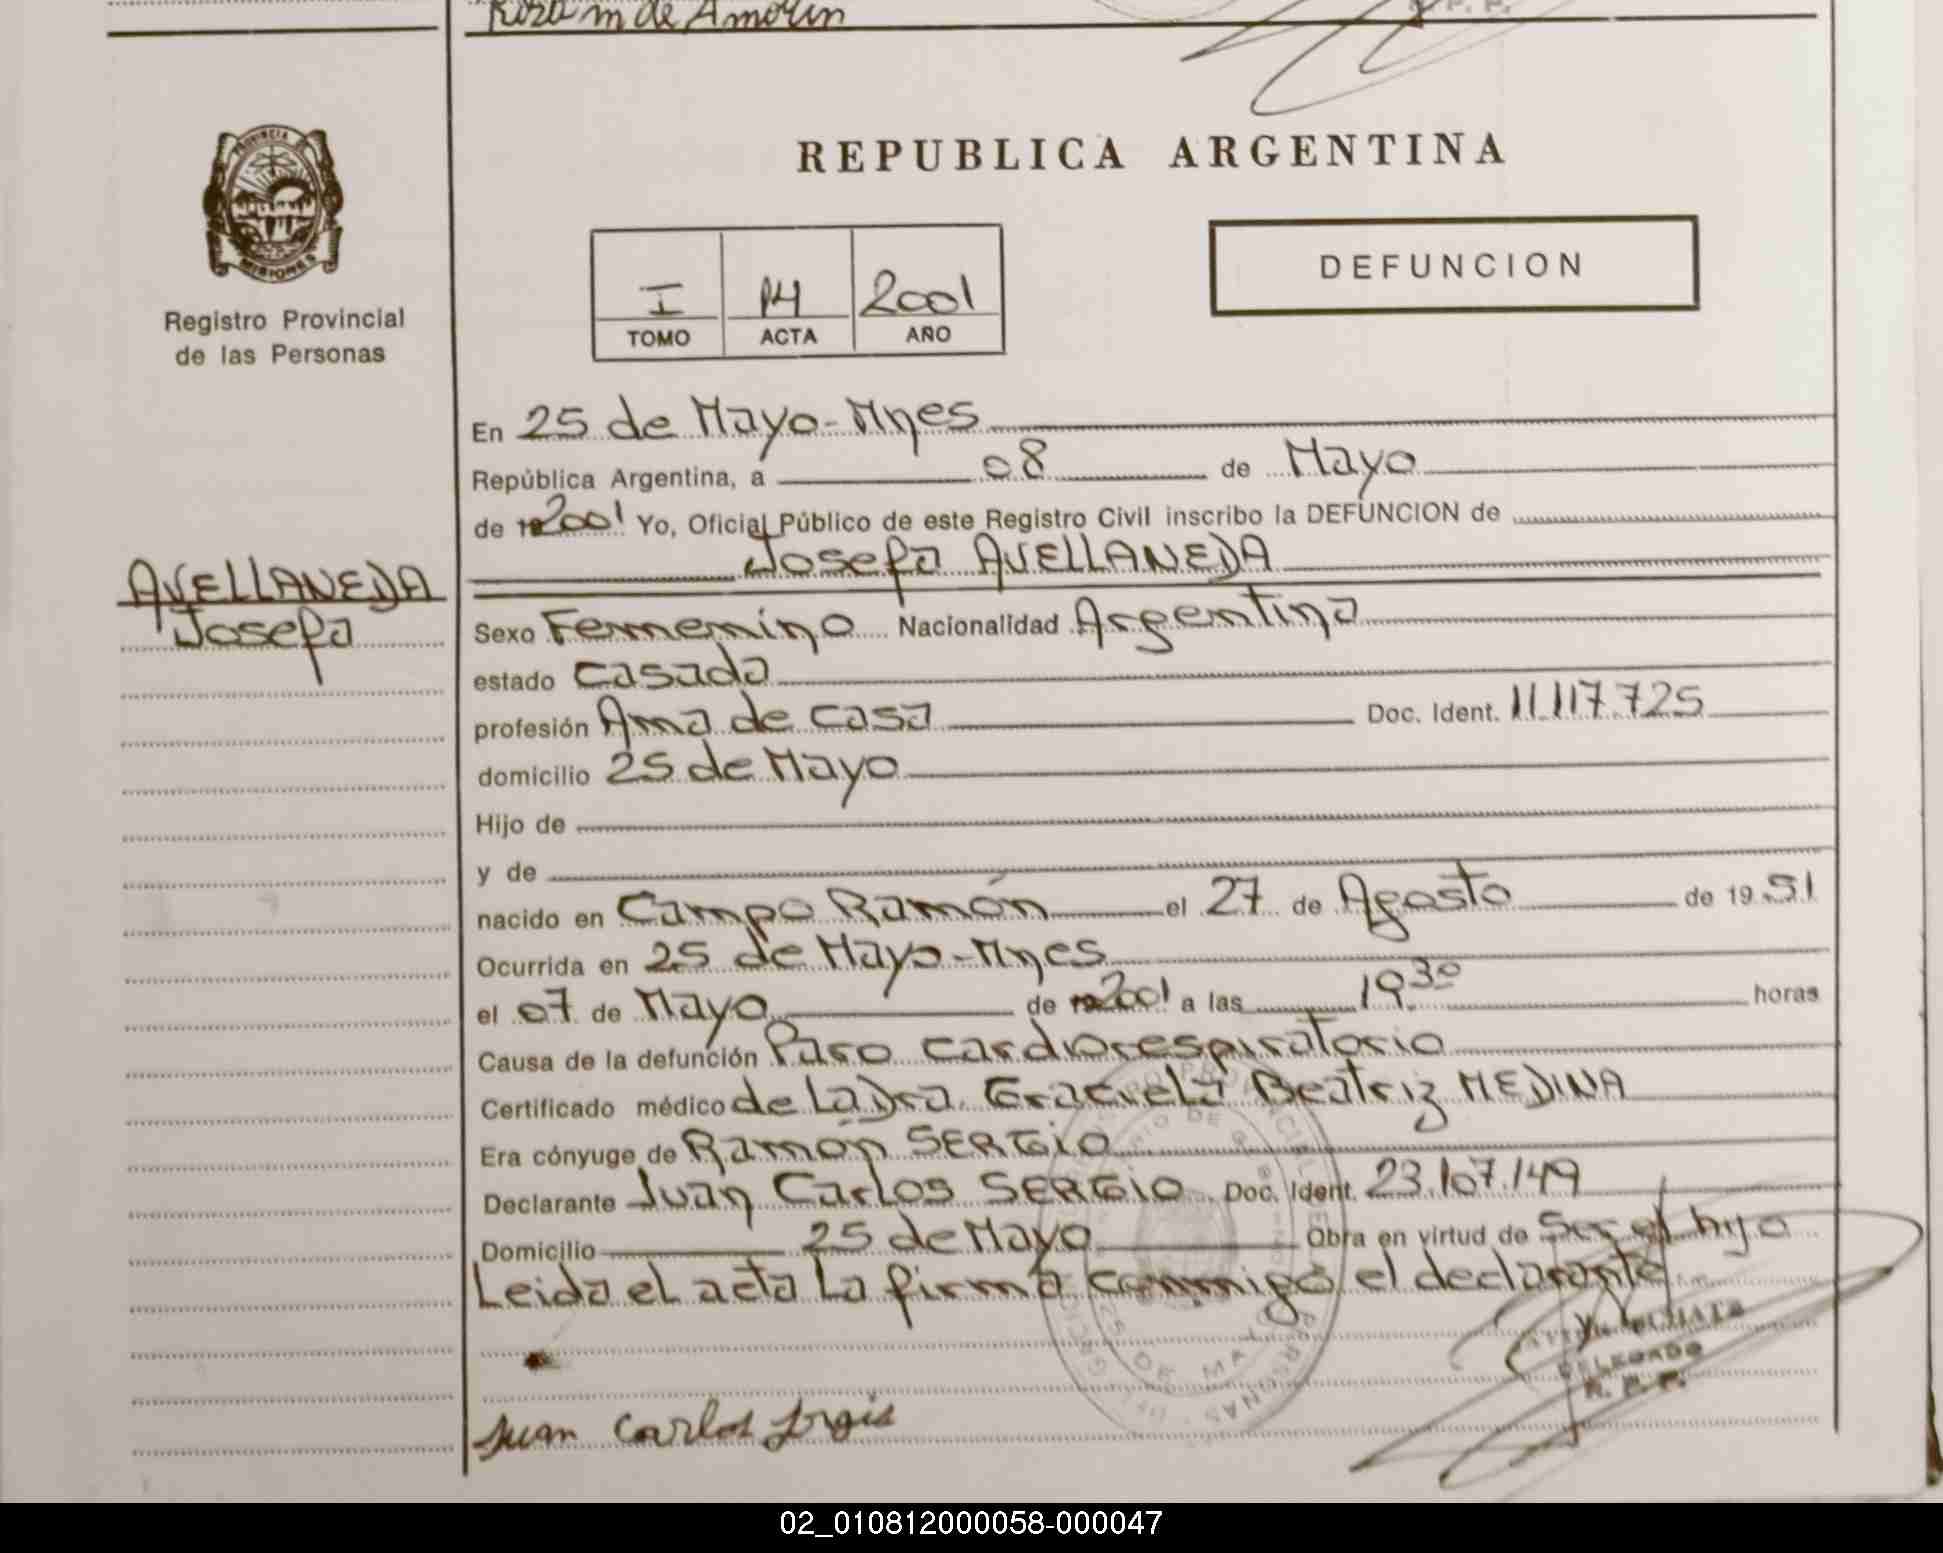 Rosa M de Amorin
PROVINCIA DE
MISIONES
Registro Provincial
de las Personas
REPUBLICA ARGENTINA
I 14 2001
TOMO ACTA AÑO
DEFUNCION
En 25 de Mayo-Mnes
República Argentina, a 08 de Mayo
de 19 2001 Yo, Oficial Público de este Registro Civil inscribo la DEFUNCION de
Josefa AVELLANEDA
AVELLANEDA
Josefa
Sexo Fememino Nacionalidad Argentina
estado Casada
profesión Ama de casa Doc. Ident. 11.117.725
domicilio 25 de Mayo
Hijo de
y de
nacido en Campo Ramón el 27 de Agosto de 19 51
Ocurrida en 25 de Mayo-Mnes
el 07 de Mayo de 19 2001 a las 19 30 horas
Causa de la defunción Paro cardiorespiratorio
Certificado médico de La Dra. Graciela Beatriz MEDINA
Era cónyuge de Ramón SERGIO
Declarante Juan Carlos SERGIO Doc. Ident. 23.107.149
Domicilio 25 de Mayo Obra en virtud de Ser el hijo
Leida el acta la firma conmigo el declarante
DELEGADO
R. P. P.
25 DE MAYO
Juan Carlos
02_010812000058-000047